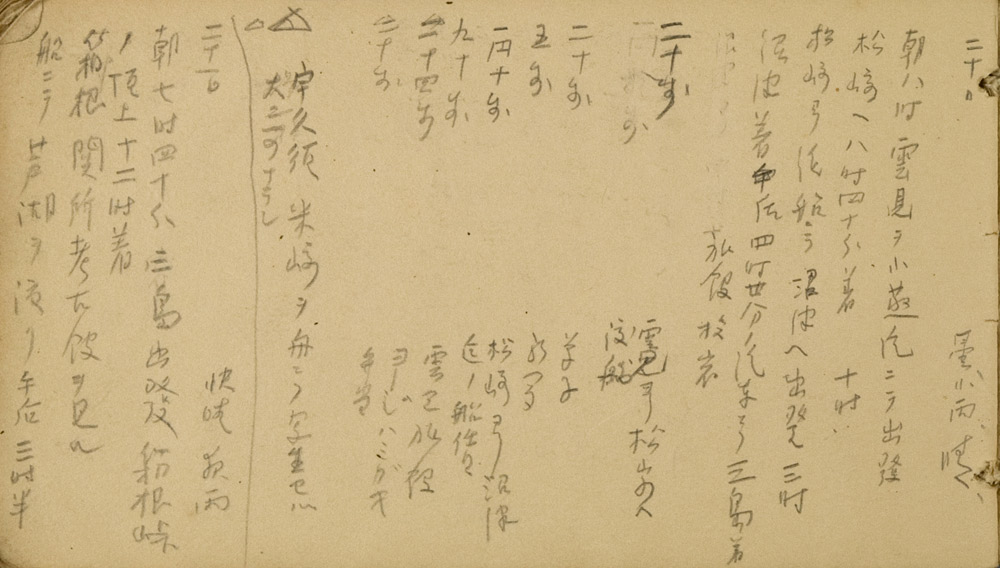 二十日 曇小雨 晴
朝八時 雲見ヲ小蒸汽ニテ出発
松崎ヘ八時四十分着 十時
松崎ヨリ汽船ニテ沼津ヘ出発 三時
沼津着 午后四時廿分ノ汽車ニテ三島着
旅館
二十銭 雲見ヨリ松崎ヘ
汽船
二十銭 菓子
五銭
一円十銭 松崎ヨリ沼津
九十銭 迄ノ船賃
二十四銭 雲見旅館
二十銭 弁当
宇久須 米崎ヲ舟ニテ写生セシ
二十一日 快晴 夜雨
朝七時四十分 三島出発 箱根峠
ノ頂上十二時着
箱根関所考古館ヲ見ル
船ニテ芦湖ヲ渡リ午后三時半